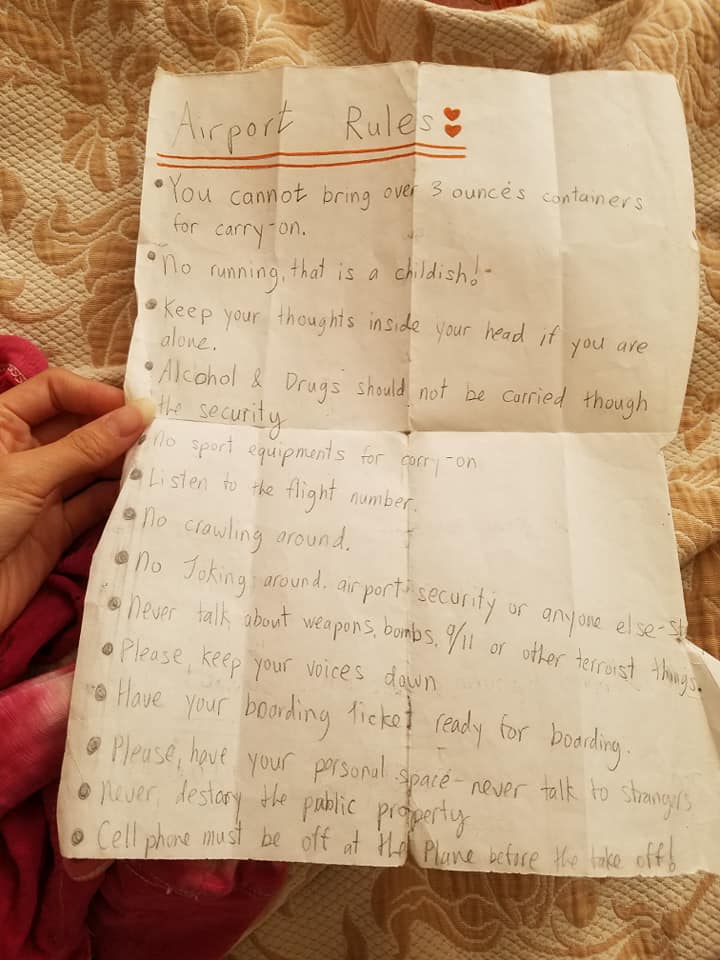 Airport Rules
• You cannot bring over 3 ounces containers
for carry-on.
• No running, that is a childish!
• Keep your thoughts inside your head if you are
alone.
• Alcohol & Drugs should not be carried though
the security
• No sport equipments for carry-on
• Listen to the flight number.
• No crawling around.
• No Joking around. airport security or anyone else-
• Never talk about weapons, bombs, 9/11 or other terroist things.
• Please, keep your voices down
• Have your boarding ticket ready for boarding.
• Please, have your personal space - never talk to strangers
• Never, destory the public property
• Cell phone must be off at the Plane before the take off!